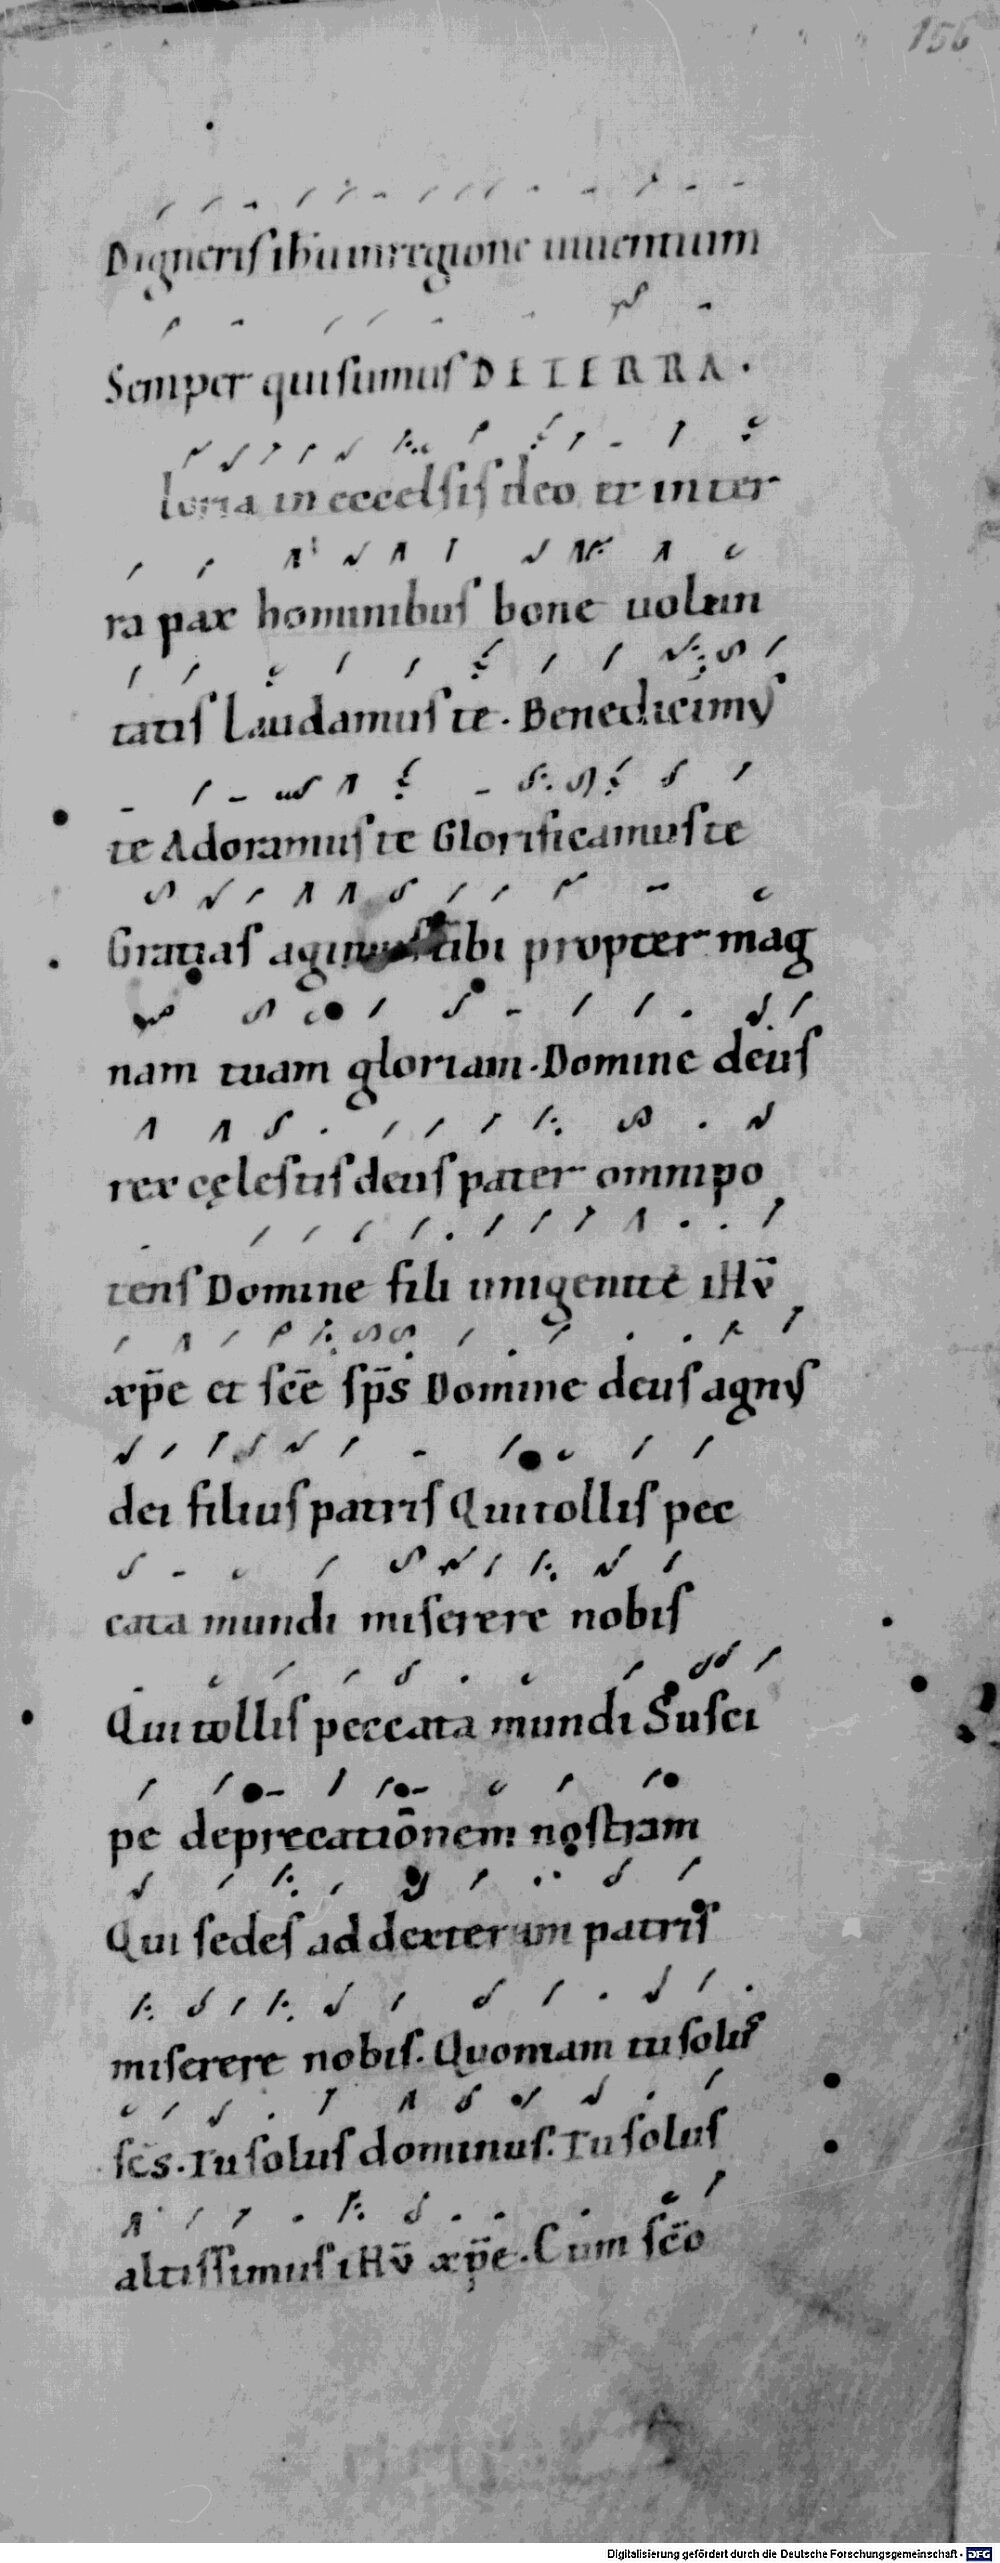 156
Digneris ihu in regione uiuentium
Semper quisumus DE TERRA.
loria in eccelsis deo et in ter
ra pax hominibus bone uolun
tatis Laudamus te. Benedicimus
te Adoramus te Glorificamus te
Gratias agimus tibi propter mag
nam tuam gloriam. Domine deus
rex cęlestis deus pater omnipo
tens Domine fili unigenite iHv̄
xp̄e et sc̄e sp̄s Domine deus agnus
dei filius patris Qui tollis pec
cata mundi miserere nobis
Qui tollis peccata mundi Susci
pe deprecatiōnem nostram
Qui sedes ad dexteram patris
miserere nobis. Quoniam tu solus
sc̄s. Tu solus dominus. Tu solus
altissimus iHv̄ xp̄e. Cum sc̄o
Digitalisierung gefördert durch die Deutsche Forschungsgemeinschaft - DFG